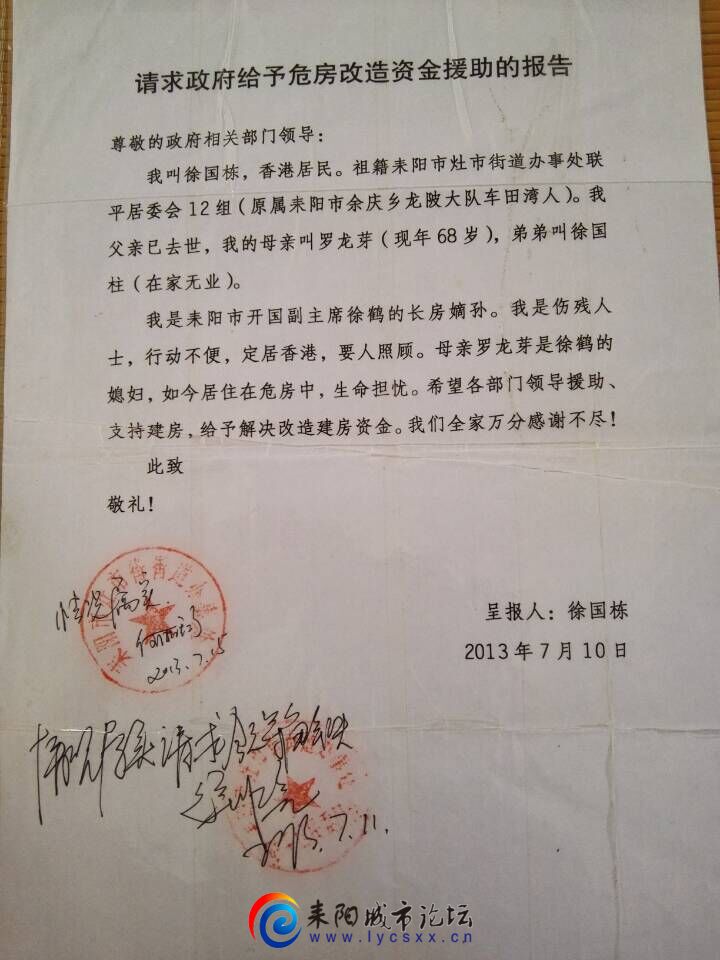 请求政府给予危房改造资金援助的报告
尊敬的政府相关部门领导：
我叫徐国栋，香港居民。祖籍耒阳市灶市街道办事处联
平居委会12组（原属耒阳市余庆乡龙陂大队车田湾人）。我
父亲已去世，我的母亲叫罗龙芽（现年68岁），弟弟叫徐国
柱（在家无业）。
我是耒阳市开国副主席徐鹤的长房嫡孙。我是伤残人
士，行动不便，定居香港，要人照顾。母亲罗龙芽是徐鹤的
媳妇，如今居住在危房中，生命担忧。希望各部门领导援助、
支持建房，给予解决改造建房资金。我们全家万分感谢不尽！
此致
敬礼！
呈报人：徐国栋
2013年7月10日
情况属实
2013.7.15
情况属实请求
2013.7.11.
耒阳城市论坛
www.lycsxx.cn